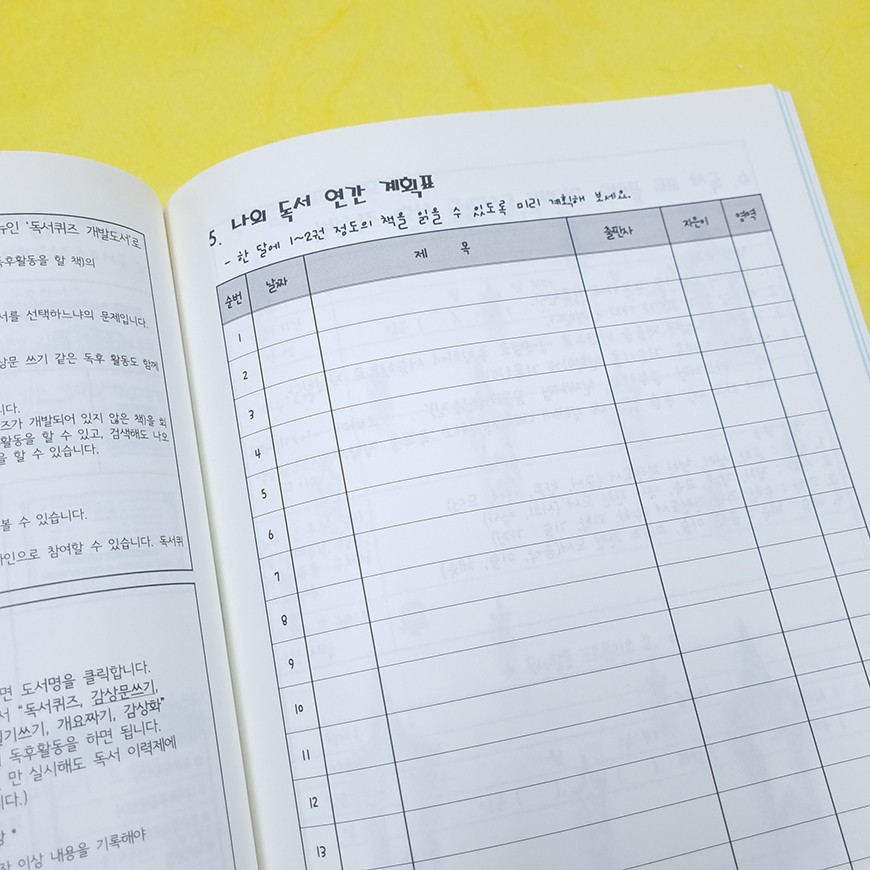 뉴인 '독서퀴즈 개발도서'로
독후활동을 할 책)의
서를 선택하느냐의 문제입니다.
상문 쓰기 같은 독후 활동도 함께
니다.
즈가 개발되어 있지 않은 책)을 회
활동을 할 수 있고, 검색해도 나오
을 할 수 있습니다.
볼 수 있습니다.
라인으로 참여할 수 있습니다. 독서퀴
면 도서명을 클릭합니다.
서 "독서퀴즈, 감상문쓰기,
일기쓰기, 개요짜기, 감상화"
독후활동을 하면 됩니다.
만 실시해도 독서 이력제에
니다.)
*
자 이상 내용을 기록해야
5. 나의 독서 연간 계획표
- 한 달에 1~2권 정도의 책을 읽을 수 있도록 미리 계획해 보세요.
순번 날짜 제 목 출판사 지은이 영역
1
2
3
4
5
6
7
8
9
10
11
12
13